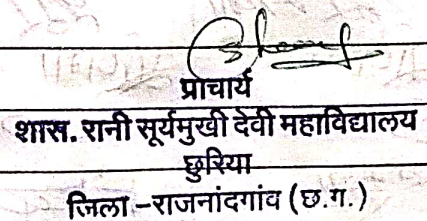 प्राचार्य
शास. रानी सूर्यमुखी देवी महाविद्यालय
छुरिया
जिला-राजनांदगांव (छ.ग.)